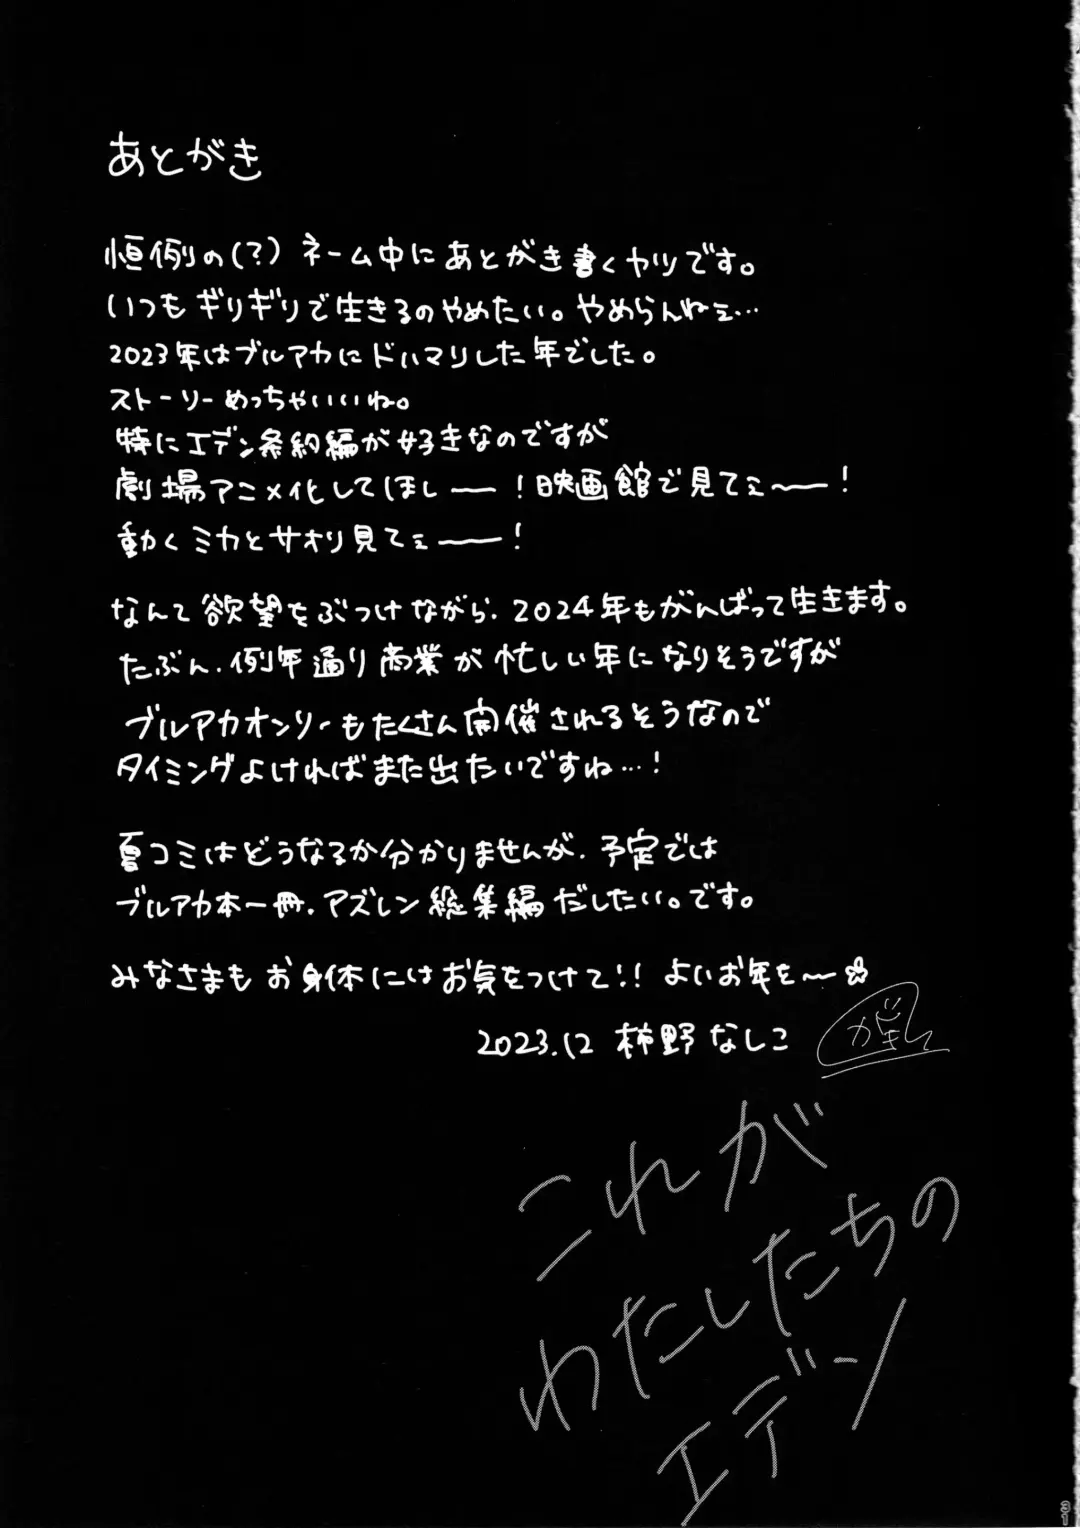 あとがき
恒例の(?) ネーム中にあとがき書くヤツです。
いつもギリギリで生きるのやめたい。やめらんねェ…
2023年はブルアカにドハマりした年でした。
ストーリーめっちゃいいね。
特にエデン条約編が好きなのですが
劇場アニメ化してほしー!映画館で見てェ〜ー!
動くミカとサオリ見てェーー!
なんて欲望をぶつけながら、2024年もがんばって生きます。
たぶん、例年通り商業が忙しい年になりそうですが
ブルアカオンリーもたくさん開催されるそうなので
タイミングよければまた出たいですね…!
夏コミはどうなるか分かりませんが、予定では
ブルアカ本一冊、アズレン総集編だしたい。です。
みなさまもお身体にはお気をつけて!! よいお年を〜☆
2023.12 柿野なしこ
これが
わたしたちの
エデン
31